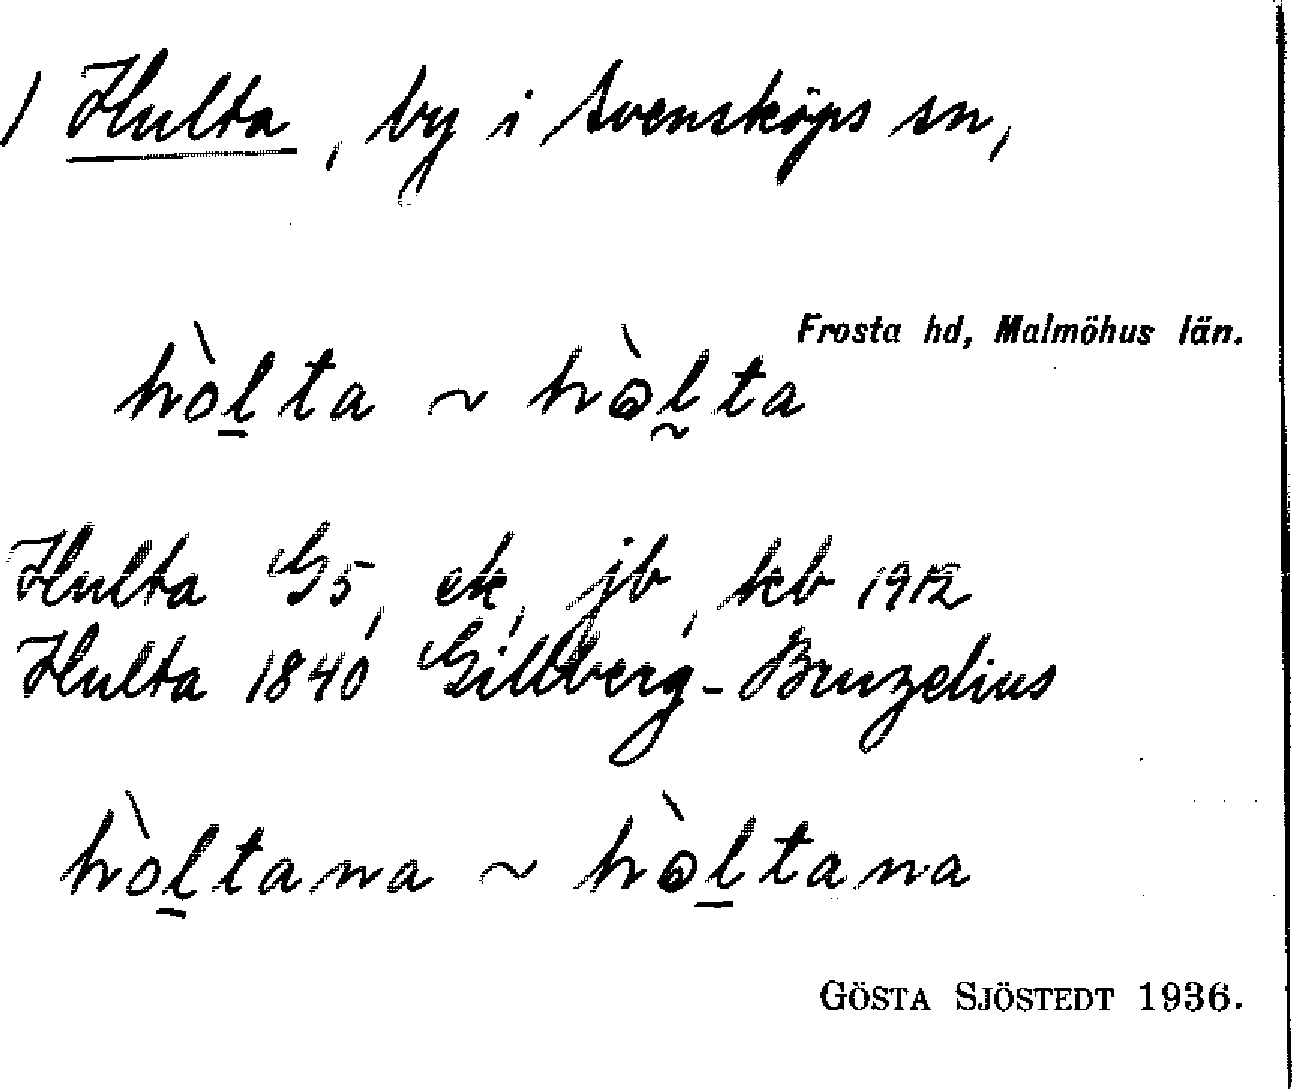 1) Hulta, by i Svensköps sn,
Frosta hd, Malmöhus län.
hòl̲ta ~ hò̢l̰ta
Hulta G5, ek, jb, kb 1912
Hulta 1840 Gillberg-Bruzelius
hòl̲tana ~ hò̢l̲tana
GÖSTA SJÖSTEDT 1936.